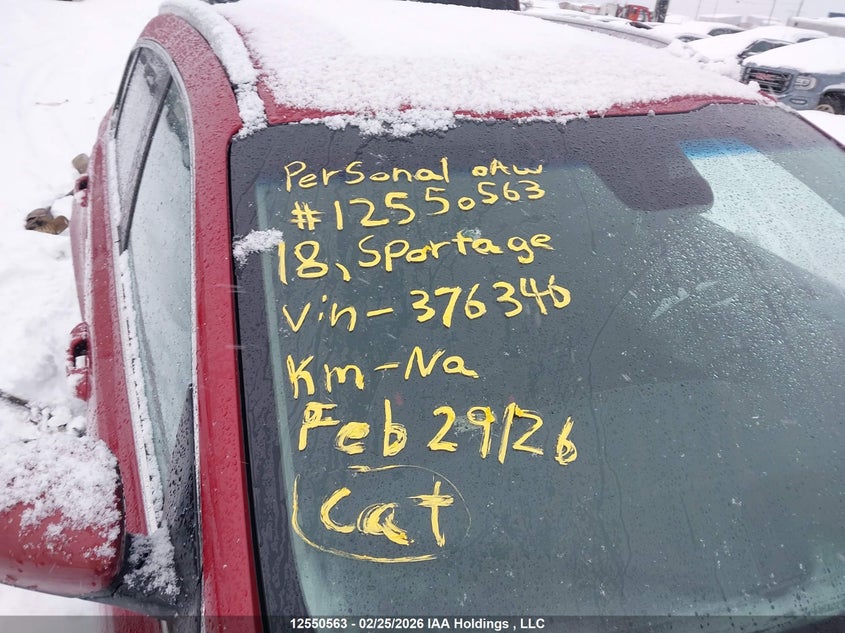 Personal OAW
#12550563
18, Sportage
Vin-376346
Km-Na
Feb 29/26
Cat
12550563 - 02/25/2026 IAA Holdings , LLC